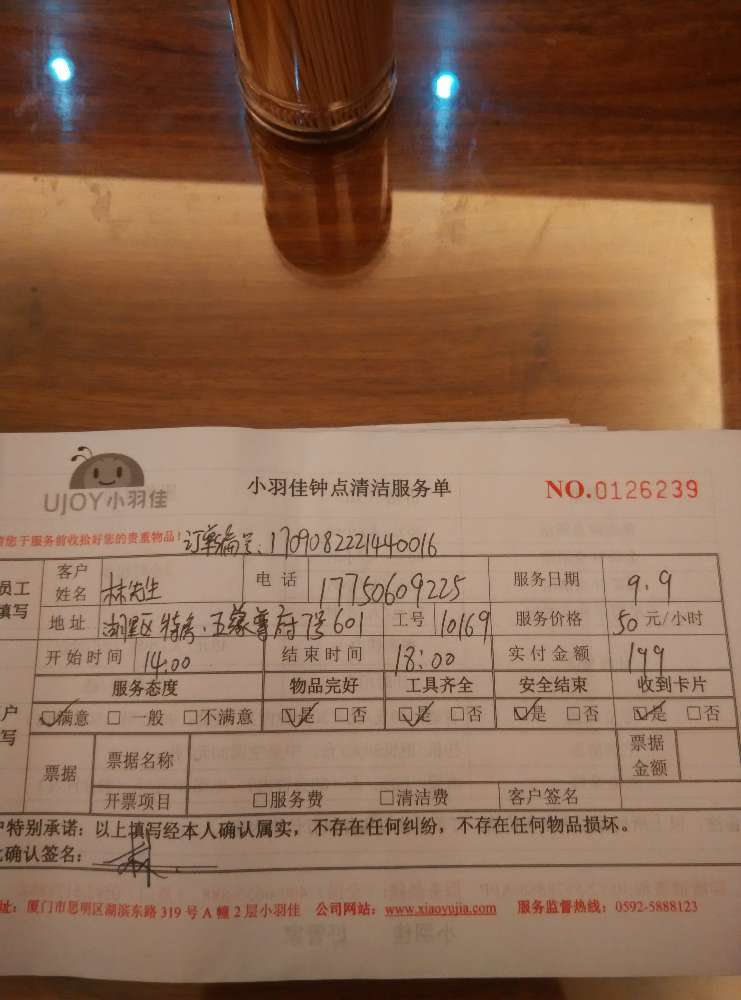 UJOY小羽佳
小羽佳钟点清洁服务单
NO.0126239
您于服务前收拾好您的贵重物品!
订单编号:1709082221440016
员工填写
客户姓名 林先生 电话 17750609225 服务日期 9.9
地址 湖里区 特房.五缘尊府7号601 工号 10169 服务价格 50元/小时
开始时间 14:00 结束时间 18:00 实付金额 199
服务态度 物品完好 工具齐全 安全结束 收到卡片
户写
☑满意 □一般 □不满意 ☑是 □否 ☑是 □否 ☑是 □否 ☑是 □否
票据 票据名称 票据金额
开票项目 □服务费 □清洁费 客户签名
户特别承诺:以上填写经本人确认属实,不存在任何纠纷,不存在任何物品损坏。
确认签名: 林
址:厦门市思明区湖滨东路319号A幢2层小羽佳 公司网站:www.xiaoyujia.com 服务监督热线:0592-5888123